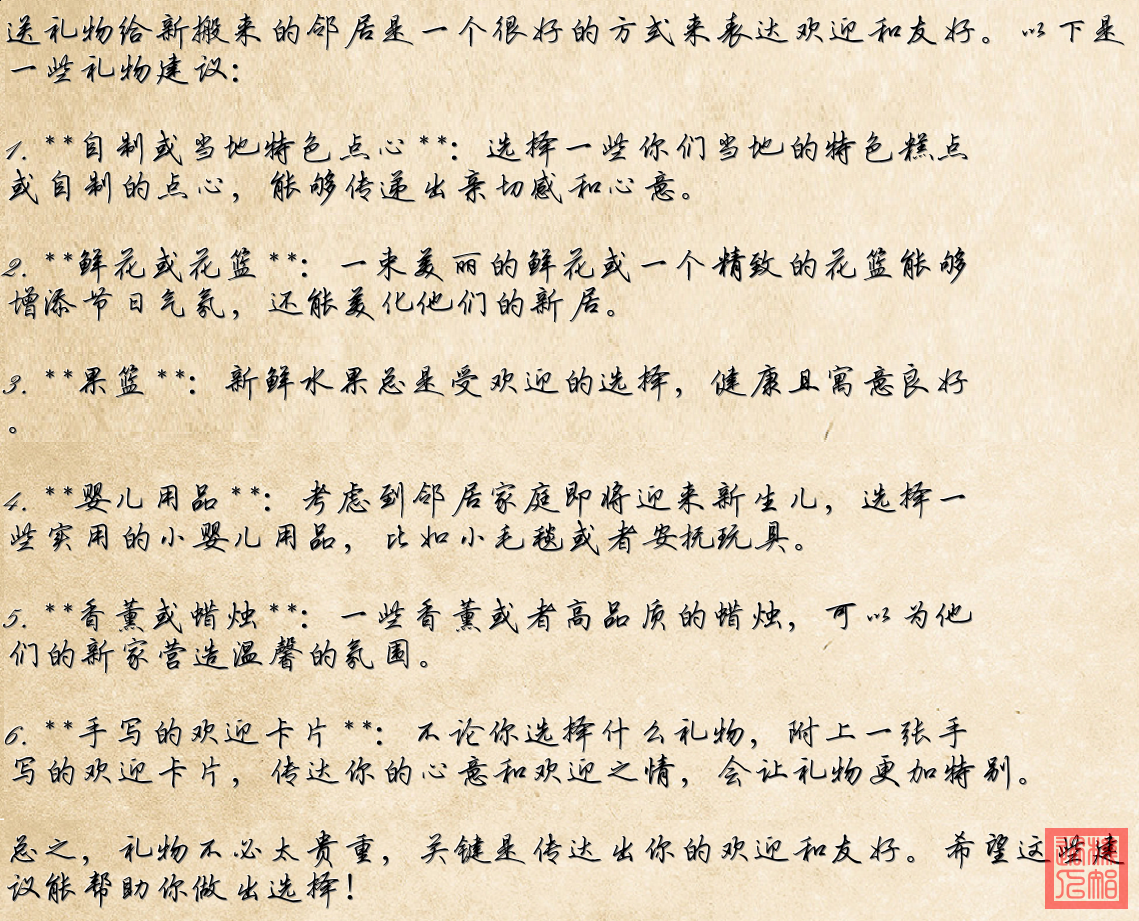 送礼物给新搬来的邻居是一个很好的方式来表达欢迎和友好。以下是
一些礼物建议：
1. **自制或当地特色点心**：选择一些你们当地的特色糕点
或自制的点心，能够传递出亲切感和心意。
2. **鲜花或花篮**：一束美丽的鲜花或一个精致的花篮能够
增添节日气氛，还能美化他们的新居。
3. **果篮**：新鲜水果总是受欢迎的选择，健康且寓意良好
。
4. **婴儿用品**：考虑到邻居家庭即将迎来新生儿，选择一
些实用的小婴儿用品，比如小毛毯或者安抚玩具。
5. **香薰或蜡烛**：一些香薰或者高品质的蜡烛，可以为他
们的新家营造温馨的氛围。
6. **手写的欢迎卡片**：不论你选择什么礼物，附上一张手
写的欢迎卡片，传达你的心意和欢迎之情，会让礼物更加特别。
总之，礼物不必太贵重，关键是传达出你的欢迎和友好。希望这些建
议能帮助你做出选择！